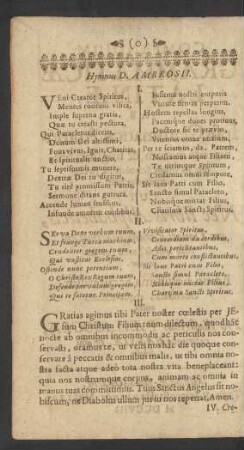 (0)
Hymnus D. AMBROSII.
I.
VEni Creator Spiritus,
Mentes tuorum visita,
Imple superna gratia,
Quæ tu creasti pectora.
Qui Paracletus diceris,
Donum Dei altissimi,
Fons vivus, Ignis, Charitas,
Et spiritualis unctio.
Tu septiformis munere,
Dextræ Dei tu digitus,
Tu rite promissum Patris,
Sermone ditans guttura.
Accende lumen sensibus,
Infunde amorem cordibus,
Infirma nostri corporis
Virtute firmans perpetim.
Hostem repellas longius,
Pacemque dones protinus,
Ductore sic te prævio,
Vitemus omne noxium.
Per te sciamus, da, Patrem,
Noscamus atque Filium,
Te utriusque Spiritum,
Credamus omni tempore.
Sit laus Patri cum Filio,
Sancto simul Paracleto,
Nobisque mittat Filius,
Charisma Sancti Spiritus.
II.
SErva Deus verbum tuum,
Et frange Turca
Crudeliter gregem tuum,
Qui vastant Ecclesiam.
Ostende nunc potentiam,
O Christe Rex Regum tuam,
Defende gregem,
Qui te fatetur Principem.
Vivificator Spiritus,
Concordiam da cordibus,
Adsis periclitantibus,
Cum morte conflictantibus.
Sit laus Patri cum Filio,
Sancto simul Paracleto,
Nobisque mittat Filius,
Charisma Sancti Spiritus.
III.
GRatias agimus tibi Pater noster cœlestis per JE-
sum Christum Filium tuum dilectum, quod hâc
nocte ab omnibus incommodis ac periculis nos con-
servasti, oramus te, ut velis nos hâc die quoque conser-
vare â peccatis & omnibus malis, ut tibi omnia no-
stra facta atque adeò tota nostra vita beneplaceant:
quia nos nostrumque corpus, animam ac omnia in
manus tuas committimus. Tuus Sanctus Angelus sit no-
biscum, ne Diabolus ullum jus in nos reperiat, Amen.
IV. Cre-